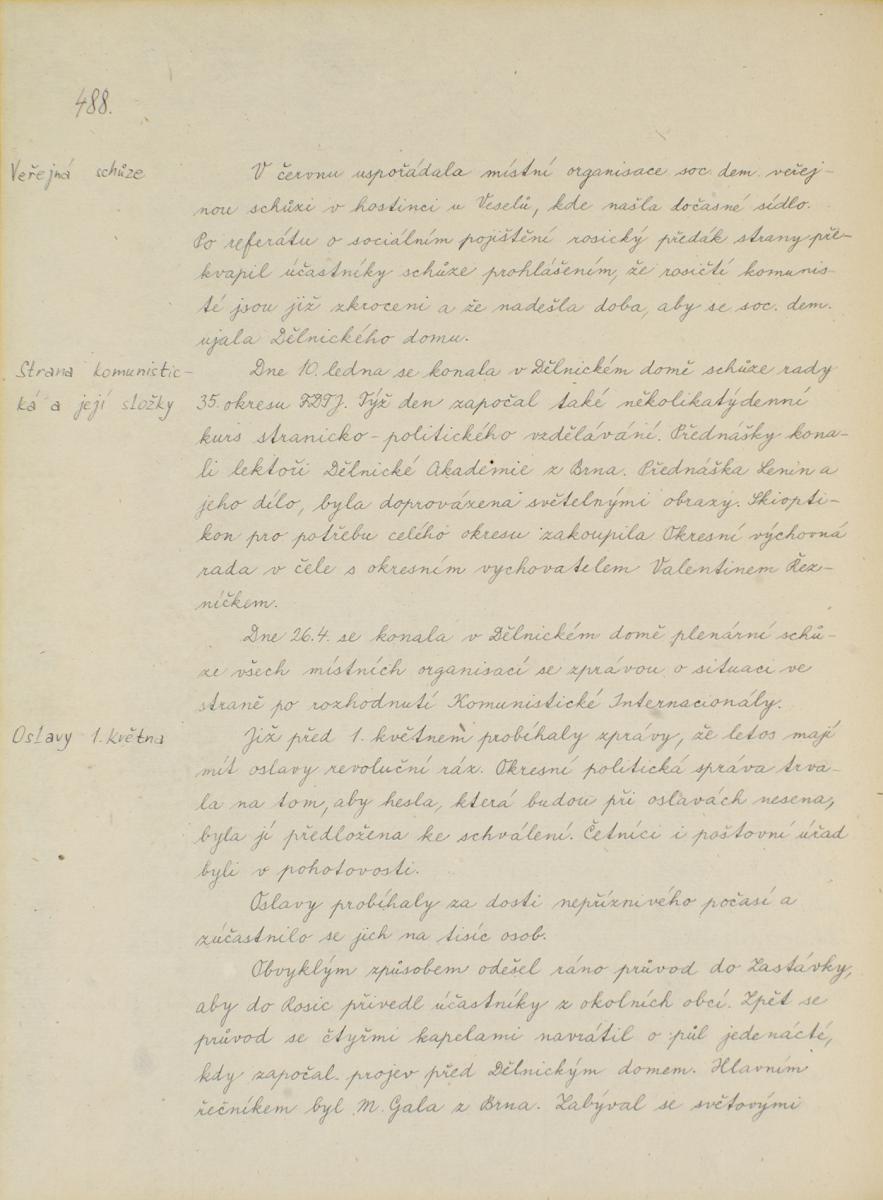 488.
Veřejná schůze
V červnu uspořádala místní organisace soc. dem. veřej-
nou schůzi v hostinci u Veselů, kde našla dočasné sídlo.
Po referátu o sociálním pojištění rosický předák strany pře-
kvapil účastníky schůze prohlášením, že rosičtí komunis-
té jsou již zkroceni a že nadešla doba, aby se soc. dem.
ujala Dělnického domu.
Strana komunistic-
ká a její složky
Dne 10. ledna se konala v Dělnickém domě schůze rady
35. okresu FDTJ. Týž den započal také několikatýdenní
kurs stranicko-politického vzdělávání. Přednášky kona-
li lektoři Dělnické Akademie z Brna. Přednáška Lenin a
jeho dílo, byla doprovázena světelnými obrazy. Skiopti-
kon pro potřebu celého okresu zakoupila Okresní výchovná
rada v čele s okresním vychovatelem Valentinem Řez-
níčkem.
Dne 26.4. se konala v Dělnickém domě plenární schů-
ze všech místních organisací se zprávou o situaci ve
straně po rozhodnutí Komunistické Internacionály.
Oslavy 1. května
Již před 1. květnem probíhaly zprávy, že letos mají
mít oslavy revoluční ráz. Okresní politická správa trva-
la na tom, aby hesla, která budou při oslavách nesena,
byla jí předložena ke schválení. Četníci i poštovní úřad
byli v pohotovosti.
Oslavy probíhaly za dosti nepříznivého počasí a
zúčastnilo se jich na tisíc osob.
Obvyklým způsobem odešel ráno průvod do Zastávky,
aby do Rosic přivedl účastníky z okolních obcí. Zpět se
průvod se čtyřmi kapelami navrátil o půl jedenácté,
kdy započal projev před Dělnickým domem. Hlavním
řečníkem byl M. Gala z Brna. Zabýval se světovými